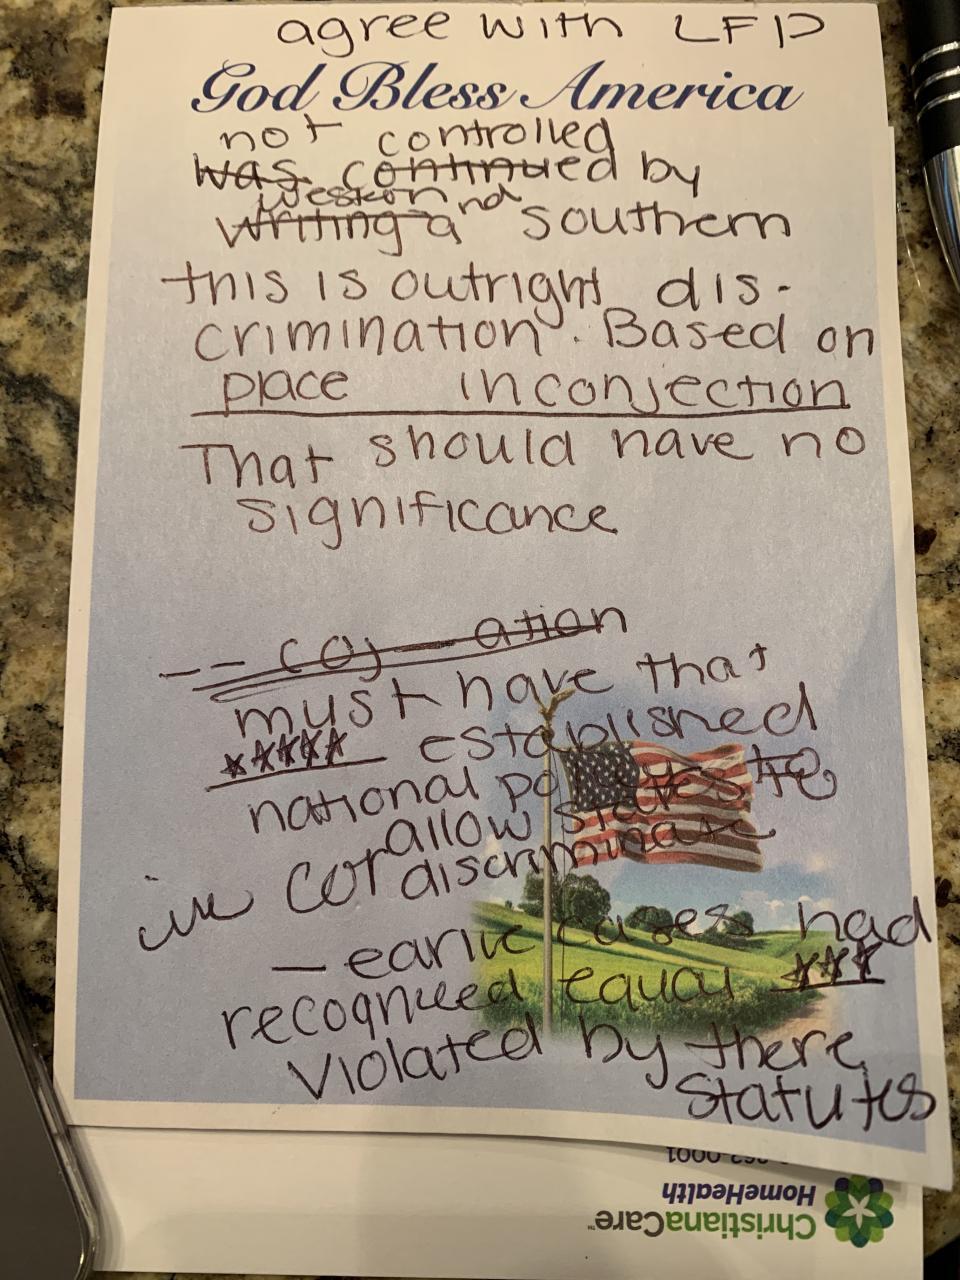 agree with LFP
God Bless America
not controlled
was continued by
western nd
writing a southern
this is outright dis-
crimination. Based on
place inconjection
That should have no
significance
-- coj — ation
must have that
***** established
national policies to
allow states
in cor discriminate
— earlie cases had
recognized equal ***
violated by there
statutes
ChristianaCare™
HomeHealth